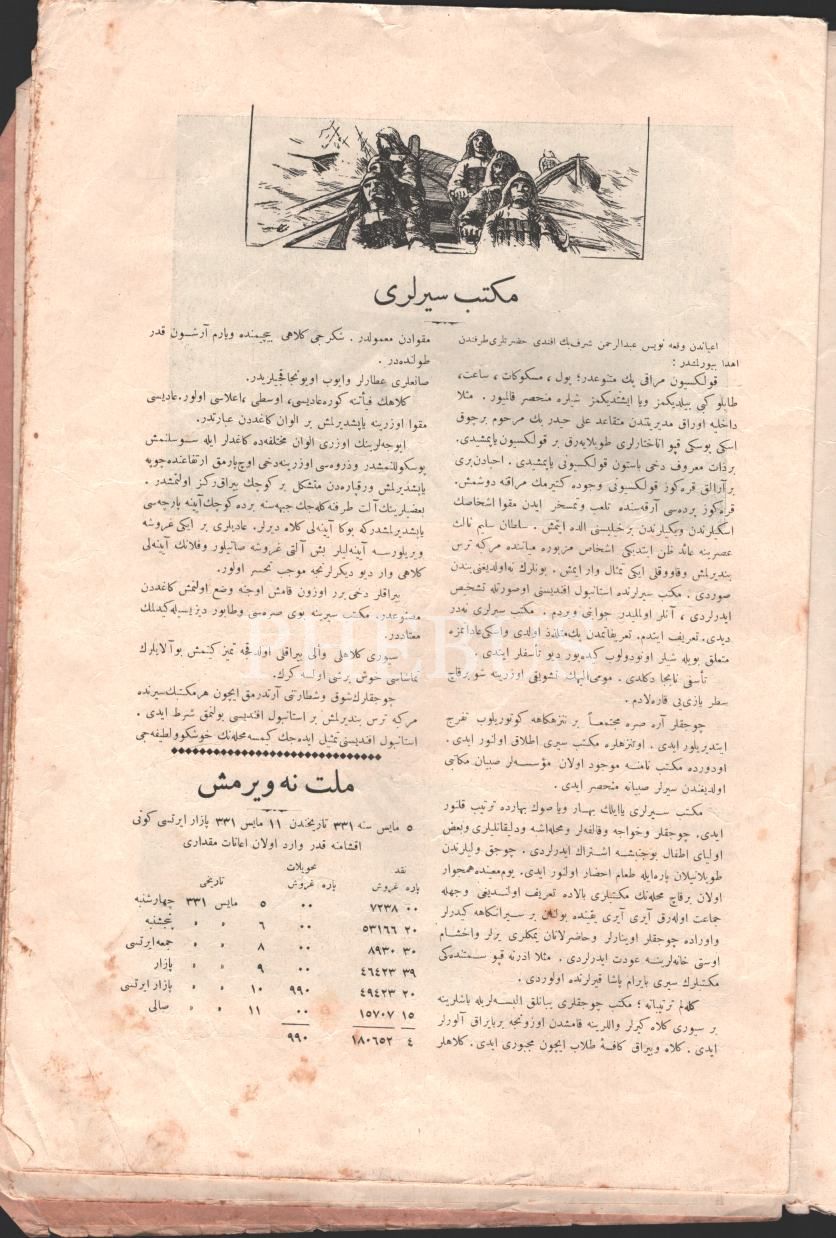 مكتب سيرلری
اعياندن وقعه نويس عبدالرحمن شرف بك افندی حضرتلری طرفندن
اهدا بيورلمشدر :
قولكسيون مراقی پك متنوعدر؛ پول ، مسكوكات ، ساعت،
طابلو كبی بيلديكمز ويا ايشتديكمز شيلره منحصر قالميور . مثلا
داخليه اوراق مديريتندن متقاعد علی حيدر بك مرحوم برچوق
اسكی يوسكی قپو اناختارلری طوپلايه‌رق بر قولكسيون ياپمشيدی.
برذات معروف دخی باستون قولكسيونی ياپمشيدی . احبادن بری
بر آرالق قره‌كوز قولكسيونی وجوده كتيرمك مراقنه دوشمش.
قره‌كوز پرده‌سی آرقه‌سنده تلعب وتمسخر ايدن مقوا اشخاصك
اسكيلرندن ويكيلرندن برخيليسنی الده ايتمش . سلطان سليم ثالث
عصرينه عائد ظن ايتديكی اشخاص مزبوره مياننده مركبه ترس
بنديرلمش وقاووقلی ايكی تمثال وار ايمش . بونلرك نه‌اولديغنی بندن
صوردی . مكتب سيرلرنده استانبول افنديسی اوصورتله تشخيص
ايدرلردی ، آنلر اولمليدر جوابنی ويردم . مكتب سيرلری نه‌در
ديدی. تعريف ايتدم. تعريفاتمدن پك متلذذ اولدی واسكی عاداتمزه
متعلق بويله شيلر اونودولوب كيده‌يور ديو تأسفلر ايتدی .
تأسفی نابجا دكلدی . مومی‌اليهك تشويقی اوزرينه شو برقاچ
سطر يازی‌يی قاره‌لادم .
چوجقلر آره صره مجتمعاً بر تنزهكاهه كوتوريلوب تفرج
ايتديريلور ايدی . اوتنزهلره مكتب سيری اطلاق اولنور ايدی.
اودورده مكتب نامنه موجود اولان مؤسسه‌لر صبيان مكاتبی
اولديغندن سيرلر صبيانه منحصر ايدی .
مكتب سيرلری يا ايلك بهار ويا صوك بهارده ترتيب قلنور
ايدی. چوجقلر وخواجه وقالفه‌لر ومحله‌اشه ودليقانليلری وبعض
اوليای اطفال بوجنبشه اشتراك ايدرلردی . چوجق وليلرندن
طوپلانيلان پاره‌ايله طعام احضار اولنور ايدی. يوم معينده همجوار
اولان برقاچ محله‌نك مكتبلری بالاده تعريف اولنديغی وجهله
جماعت اوله‌رق آيری آيری يقينده بولنان بر سيرانكاهه كيدرلر
واوراده چوجقلر اوينارلر وحاضرلانان يمكلری يرلر واخشام
اوستی خانه‌لرينه عودت ايدرلردی . مثلا ادرنه قپو سمتنده‌كی
مكتبلرك سيری بايرام پاشا قيرلرنده اولوردی .
كله‌لم ترتيباته ؛ مكتب چوجقلری يبانلق البسه‌لريله باشلرينه
بر سيوری كلاه كيرلر واللرينه قامشدن اوزونجه بربايراق آلورلر
ايدی . كلاه وبيراق كافۀ طلاب ايچون مجبوری ايدی . كلاهلر
مقوادن معمولدر . شكرجی كلاهی بيچيمنده ويارم آرشون قدر
طولنده‌در .
صانعلری عطارلر وايوب اويونجاقجيلريدر.
كلاهك فيأتنه كوره عاديسی، اوسطی ، اعلاسی اولور. عاديسی
مقوا اوزرينه ياپشديرلمش بر الوان كاغددن عبارتدر.
ايوجه‌لرينك اوزری الوان مختلفه‌ده كاغدلر ايله سوسلنمش
پوسكوللنمشدر وذروه‌سی اوزرينه‌دخی اوچ پارمق ارتفاعنده چوپه
ياپشديرلمش ورقپاره‌دن متشكل بر كوچك بيراق ركز اولنمشدر .
بعضيلرينك آلت طرفنه كله‌جك جبهه‌سنه برده كوچك آينه پارچه‌سی
ياپشديرلمشدركه بوكا آينه‌لی كلاه ديرلر. عاديلری بر ايكی غروشه
ويريلورسه آينه‌ليلر بش آلتی غروشه صاتيلور وفلانك آينه‌لی
كلاهی وار ديو ديكرلرنجه موجب تحسر اولور.
بيراقلر دخی برر اوزون قامش اوجنه وضع اولنمش كاغددن
مصنوعدر. مكتب سيرينه بوی صره‌سی وطابور ديزيسيله كيدلمك
معتاددر.
سيوری كلاهلی واللی بيراقلی اولدقجه تميز كينمش بو آلايلرك
تماشاسی خوش برشی اولسه كرك.
چوجقلرك شوق وشطارتنی آرتدرمق ايچون هرمكتبك سيرنده
مركبه ترس بنديرلمش بر استانبول افنديسی بولنمق شرط ايدی .
استانبول افنديسنی تمثيل ايده‌جك كيمسه محله‌نك خوشكوولطيفه‌جی
ملت نه ويرمش
٥ مايس سنه ٣٣١ تاريخندن ١١ مايس ٣٣١ پازار ايرتسی كونی
اقشامنه قدر وارد اولان اعانات مقداری
نقد تحويلات
پاره غروش پاره غروش تاريخی
٠٠ ٧٢٣٨ ٠٠ ٥ مايس ٣٣١ چهارشنبه
٢٠ ٥٣١٦٦ ٠٠ ٦ » » پنجشنبه
٣٠ ٨٩٣٠ ٠٠ ٨ » » جمعه‌ايرتسی
٣٩ ٤٦٤٢٣ ٠٠ ٩ » » پازار
٢٠ ٤٩٤٢٣ ٩٩٠ ١٠ » » پازار ايرتسی
١٥ ١٥٧٠٧ ٠٠ ١١ » » صالی
٤ ١٨٠٦٥٢ ٩٩٠
PHEBUS